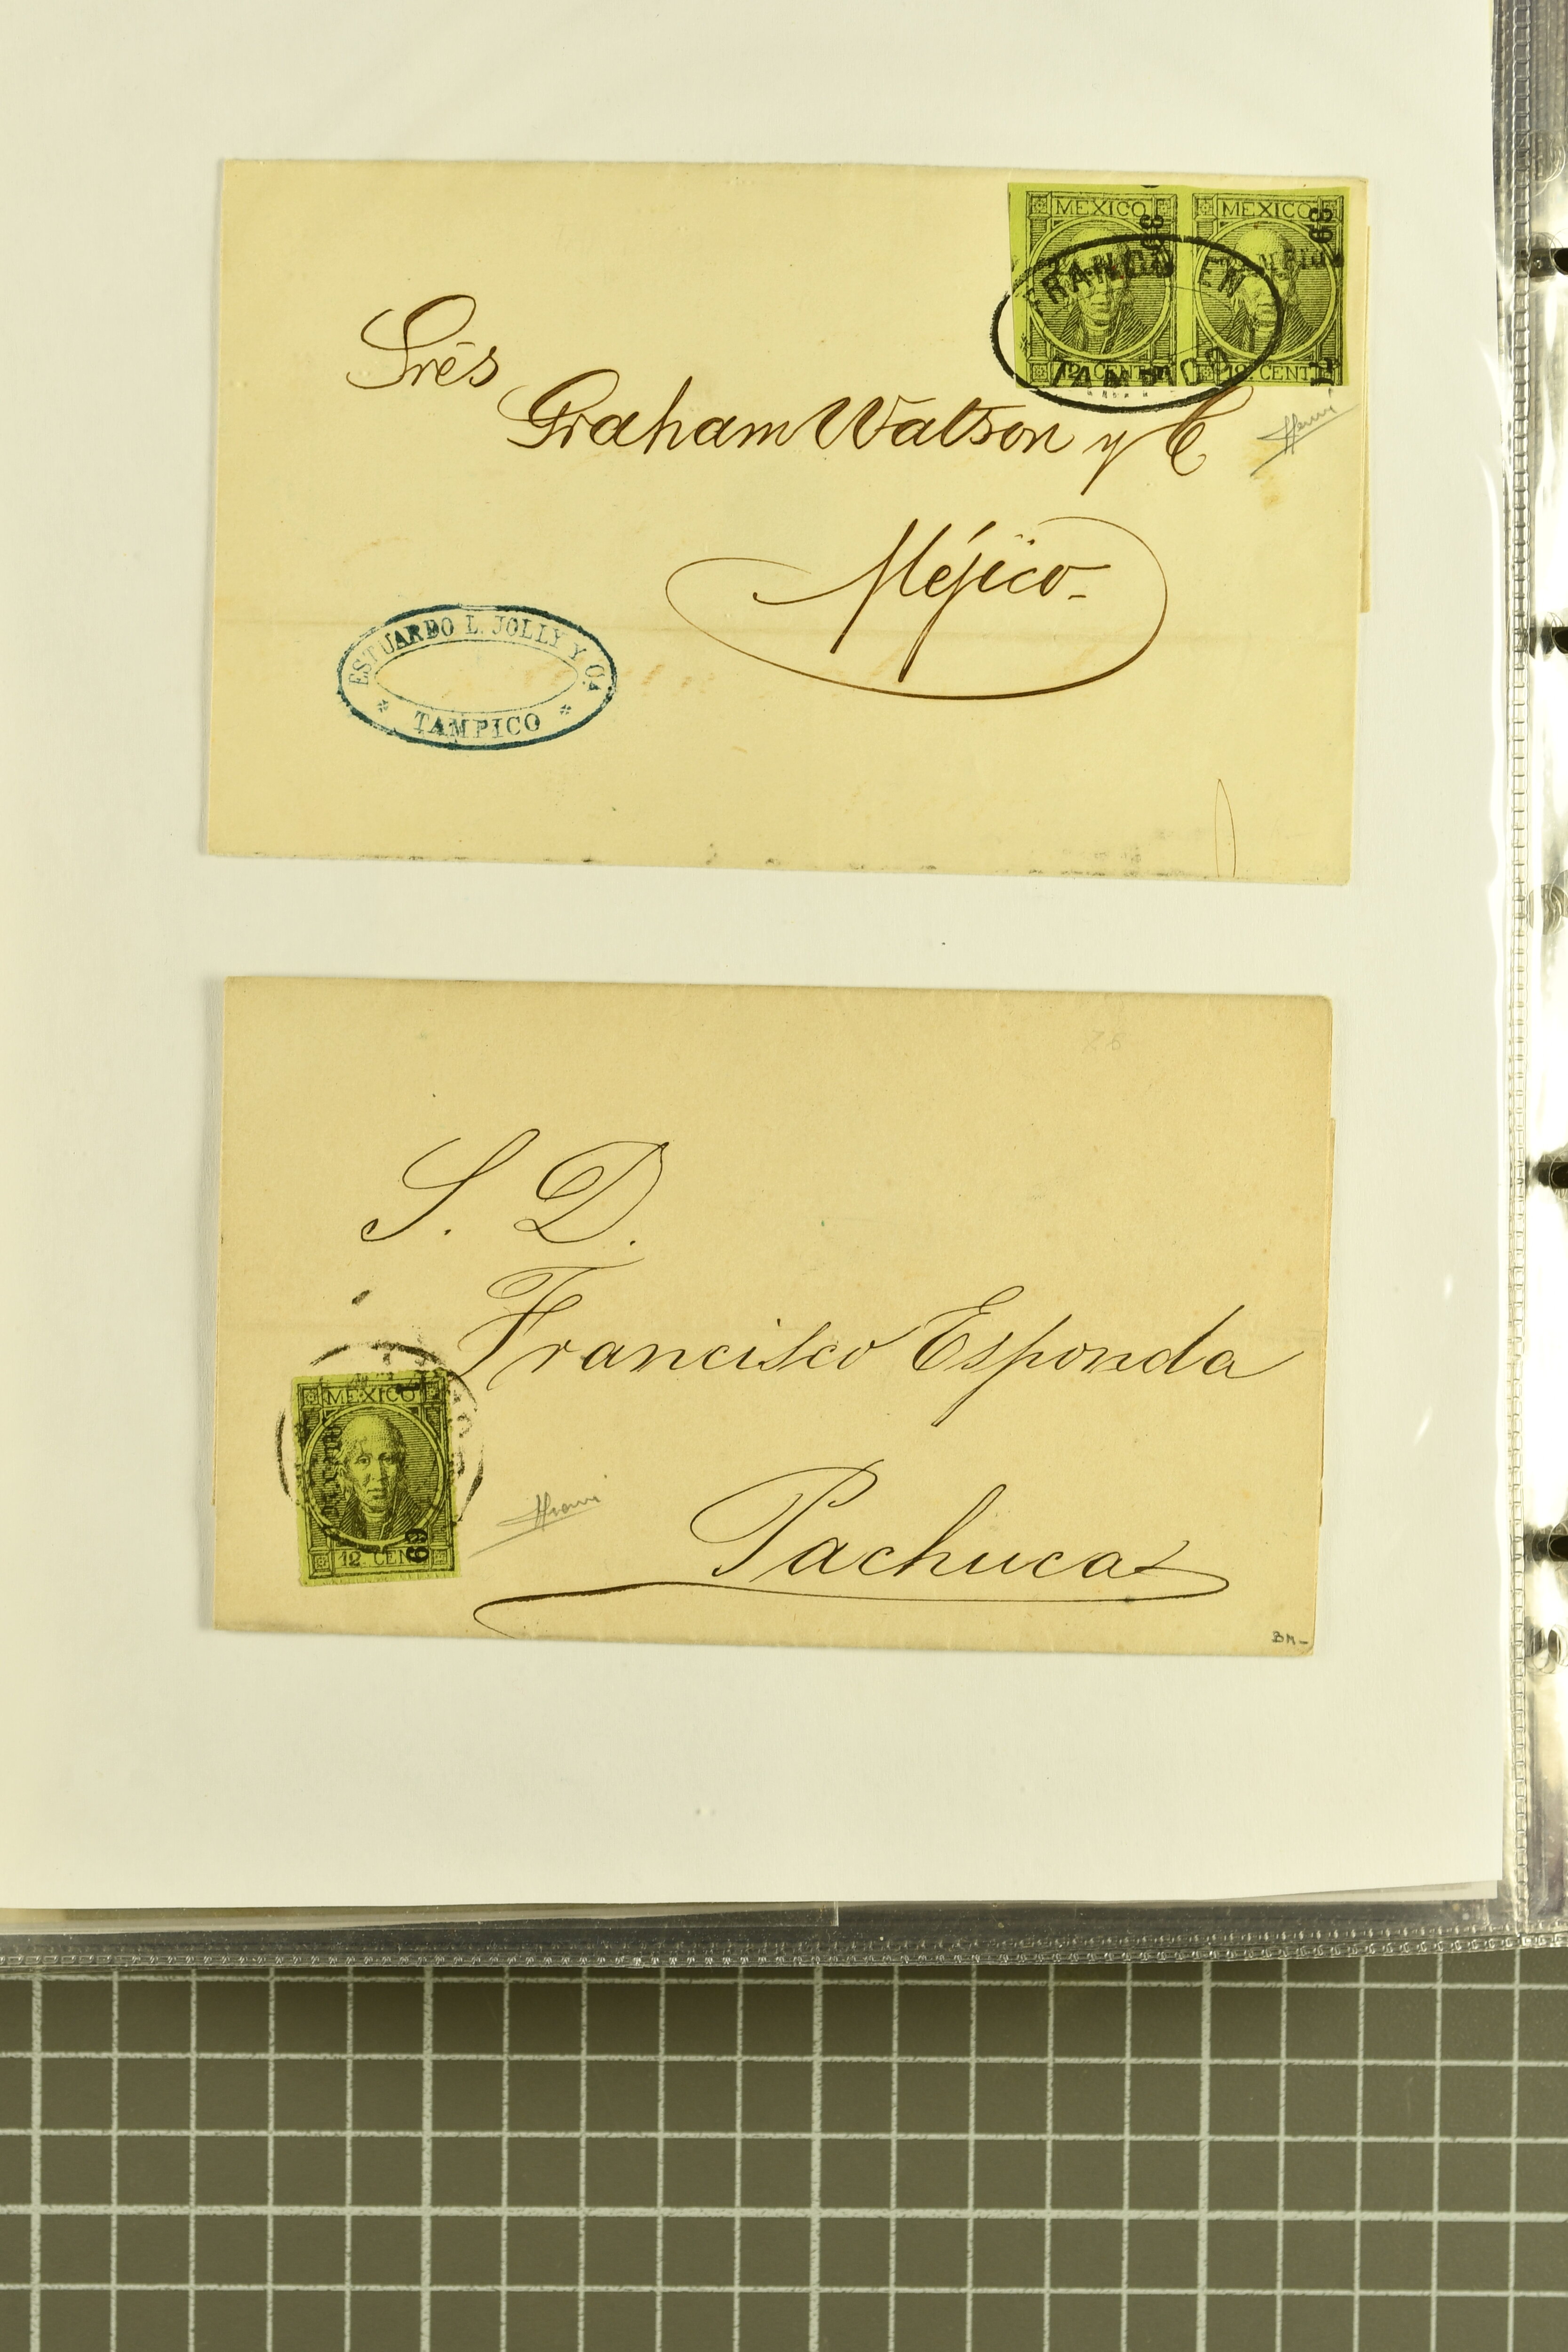 MEXICO MEXICO
68 68
FRANCO EN
TAMPICO
12 CENT 12 CENT
Srēs
Graham Watson y C
Méjico-
ESTUARDO L. JOLLY Y Ca
* TAMPICO *
S. D.
Francisco Esponda
MEXICO
12 CEN
69
Pachuca
BM-